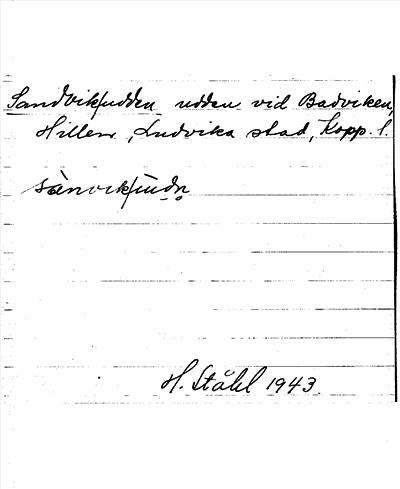 Sandviksudden udden vid Badviken,
Hillen, Ludvika stad, Kopp. l.
H. Ståhl 1943.